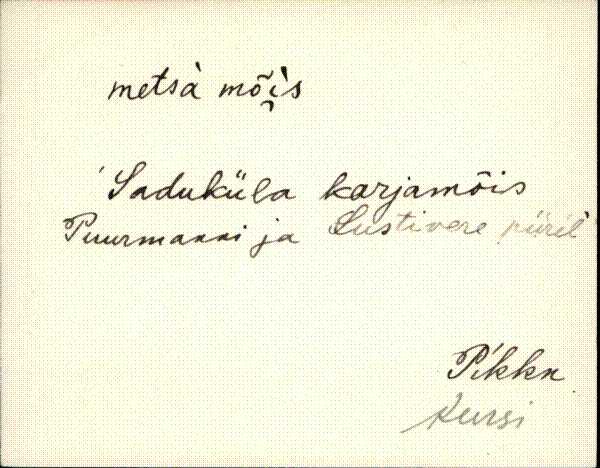 metsà mõi̯s
Saduküla karjamõis
Puurmanni ja Lustivere piiril
Pikkn
Kursi